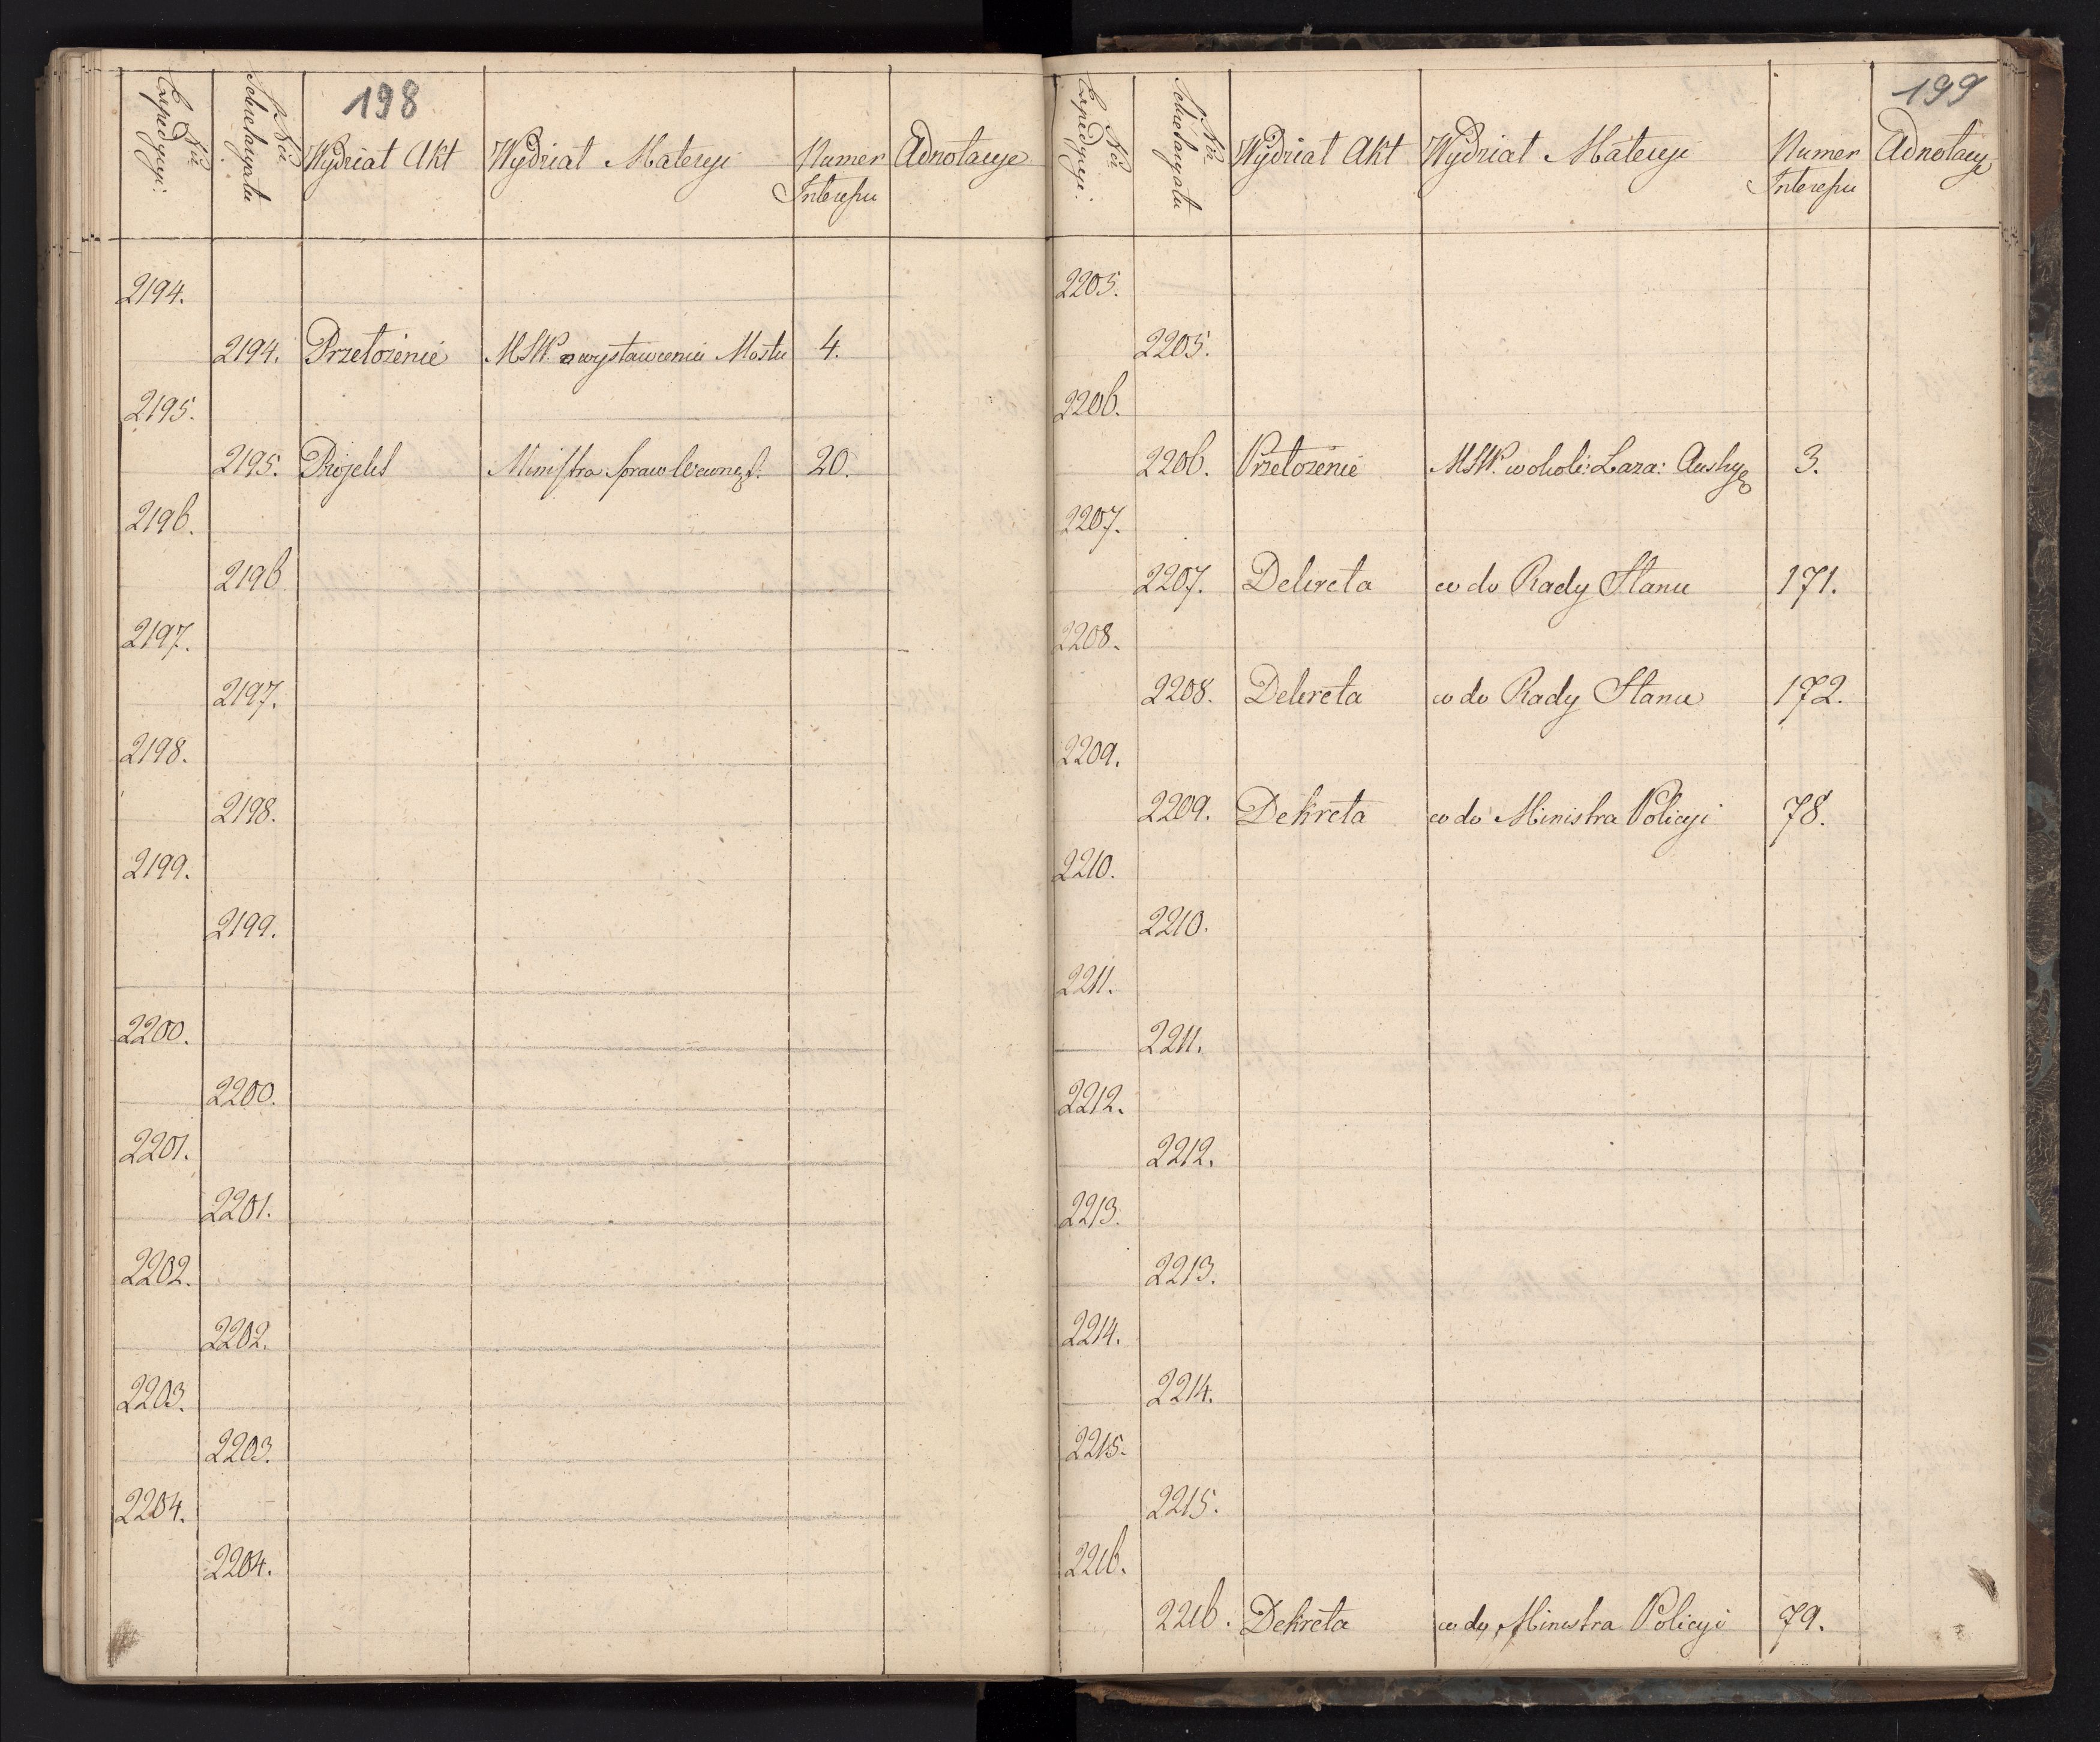 198
Nro Expedycyi. Nro Sekretaryatu Wydział Akt Wydział Materyi Numer Interessu Adnotacye
2194.
2194. Przełożenie MSW. o wystawieniu Mostu 4.
2195.
2195. Projekt Ministra Spraw Wewnęt. 20.
2196.
2196
2197.
2197.
2198.
2198.
2199.
2199.
2200.
2200.
2201.
2201.
2202.
2202.
2203.
2203.
2204.
2204.
199
Nro Expedycyi. Nro Sekretaryatu Wydział Akt Wydział Materyi Numer Interessu Adnotacye
2205.
2205.
2206.
2206. Przełożenie MSW. w okoli: Laza: 3.
2207.
2207. Dekreta co do Rady Stanu 171.
2208.
2208. Dekreta co do Rady Stanu 172.
2209.
2209. Dekreta co do Ministra Policyi 78.
2210.
2210.
2211.
2211.
2212.
2212.
2213.
2213.
2214.
2214.
2215.
2215.
2216.
2216. Dekreta co do Ministra Policyi 79.